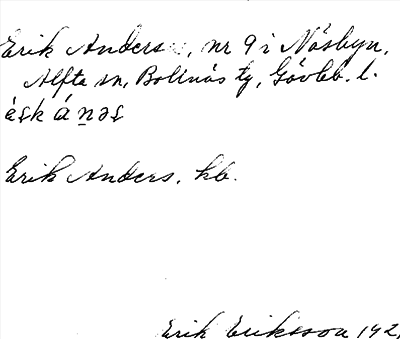 Erik Anders, nr 9 i Näsbyn,
Alfta sn, Bollnäs tg, Gävleb. l.
èşk áṉəş
Erik Anders, hb.
Erik Eriksson 192